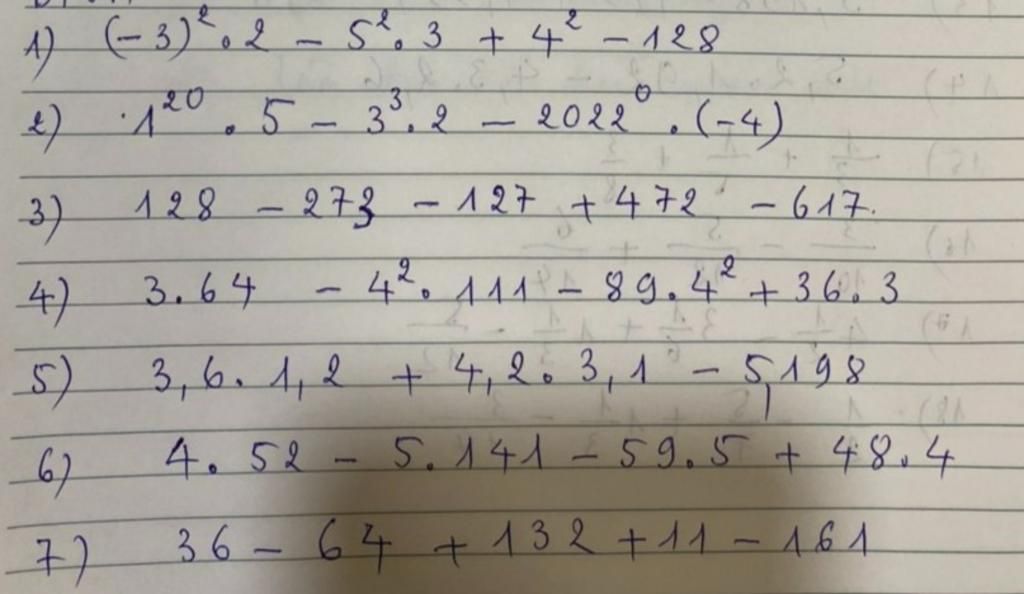 1) (-3)². 2 - 5². 3 + 4² - 128
2) 1²⁰ . 5 - 3³. 2 - 2022⁰ . (-4)
3) 128 - 273 - 127 + 472 - 617.
4) 3.64 - 4². 111 - 89. 4² + 36. 3
5) 3,6. 1,2 + 4,2. 3,1 - 5,198
6) 4. 52 - 5. 141 - 59. 5 + 48. 4
7) 36 - 64 + 132 + 11 - 161